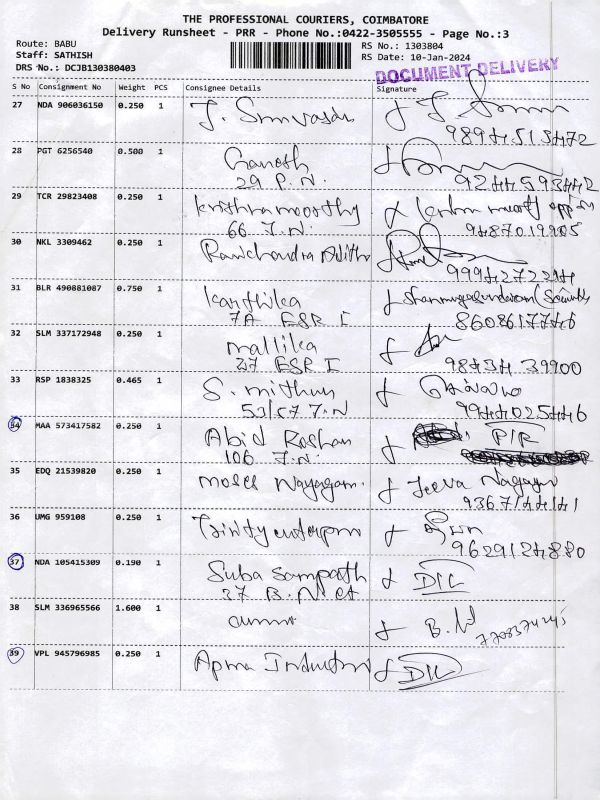 THE PROFESSIONAL COURIERS, COIMBATORE
Delivery Runsheet - PRR - Phone No.:0422-3505555 - Page No.:3
Route: BABU
Staff: SATHISH
DRS No.: DCJB130380403
RS No.: 1303804
RS Date: 10-Jan-2024
DOCUMENT DELIVERY
S No Consignment No Weight PCS Consignee Details Signature
27 NDA 906036150 0.250 1 J. Srinivasan
9894513472
28 PGT 6256540 0.500 1 Ganesh
29 P.N. 9244593442
29 TCR 29823408 0.250 1 Krishnamoorthy
66 J.N. 9487019905
30 NKL 3309462 0.250 1 Ramchandra
9994272214
31 BLR 490881087 0.750 1 Karthika Shanmugasundaram (Security
7A ESR I 8608617746
32 SLM 337172948 0.250 1 mallika
37 ESR I 98434 39900
33 RSP 1838325 0.465 1 S. mithun
53/57 J.N 9944025446
34 MAA 573417582 0.250 1 Abid Roshan
106 J.N.
35 EDQ 21539820 0.250 1 Moses Nayagam. Jeeva Nagayam
9367144141
36 UMG 959108 0.250 1 Trinity enterprises
9629124880
37 NDA 105415309 0.190 1 Suba Sampath D/L
37 B.N
38 SLM 336965566 1.600 1
39 VPL 945796985 0.250 1 Industries D/L